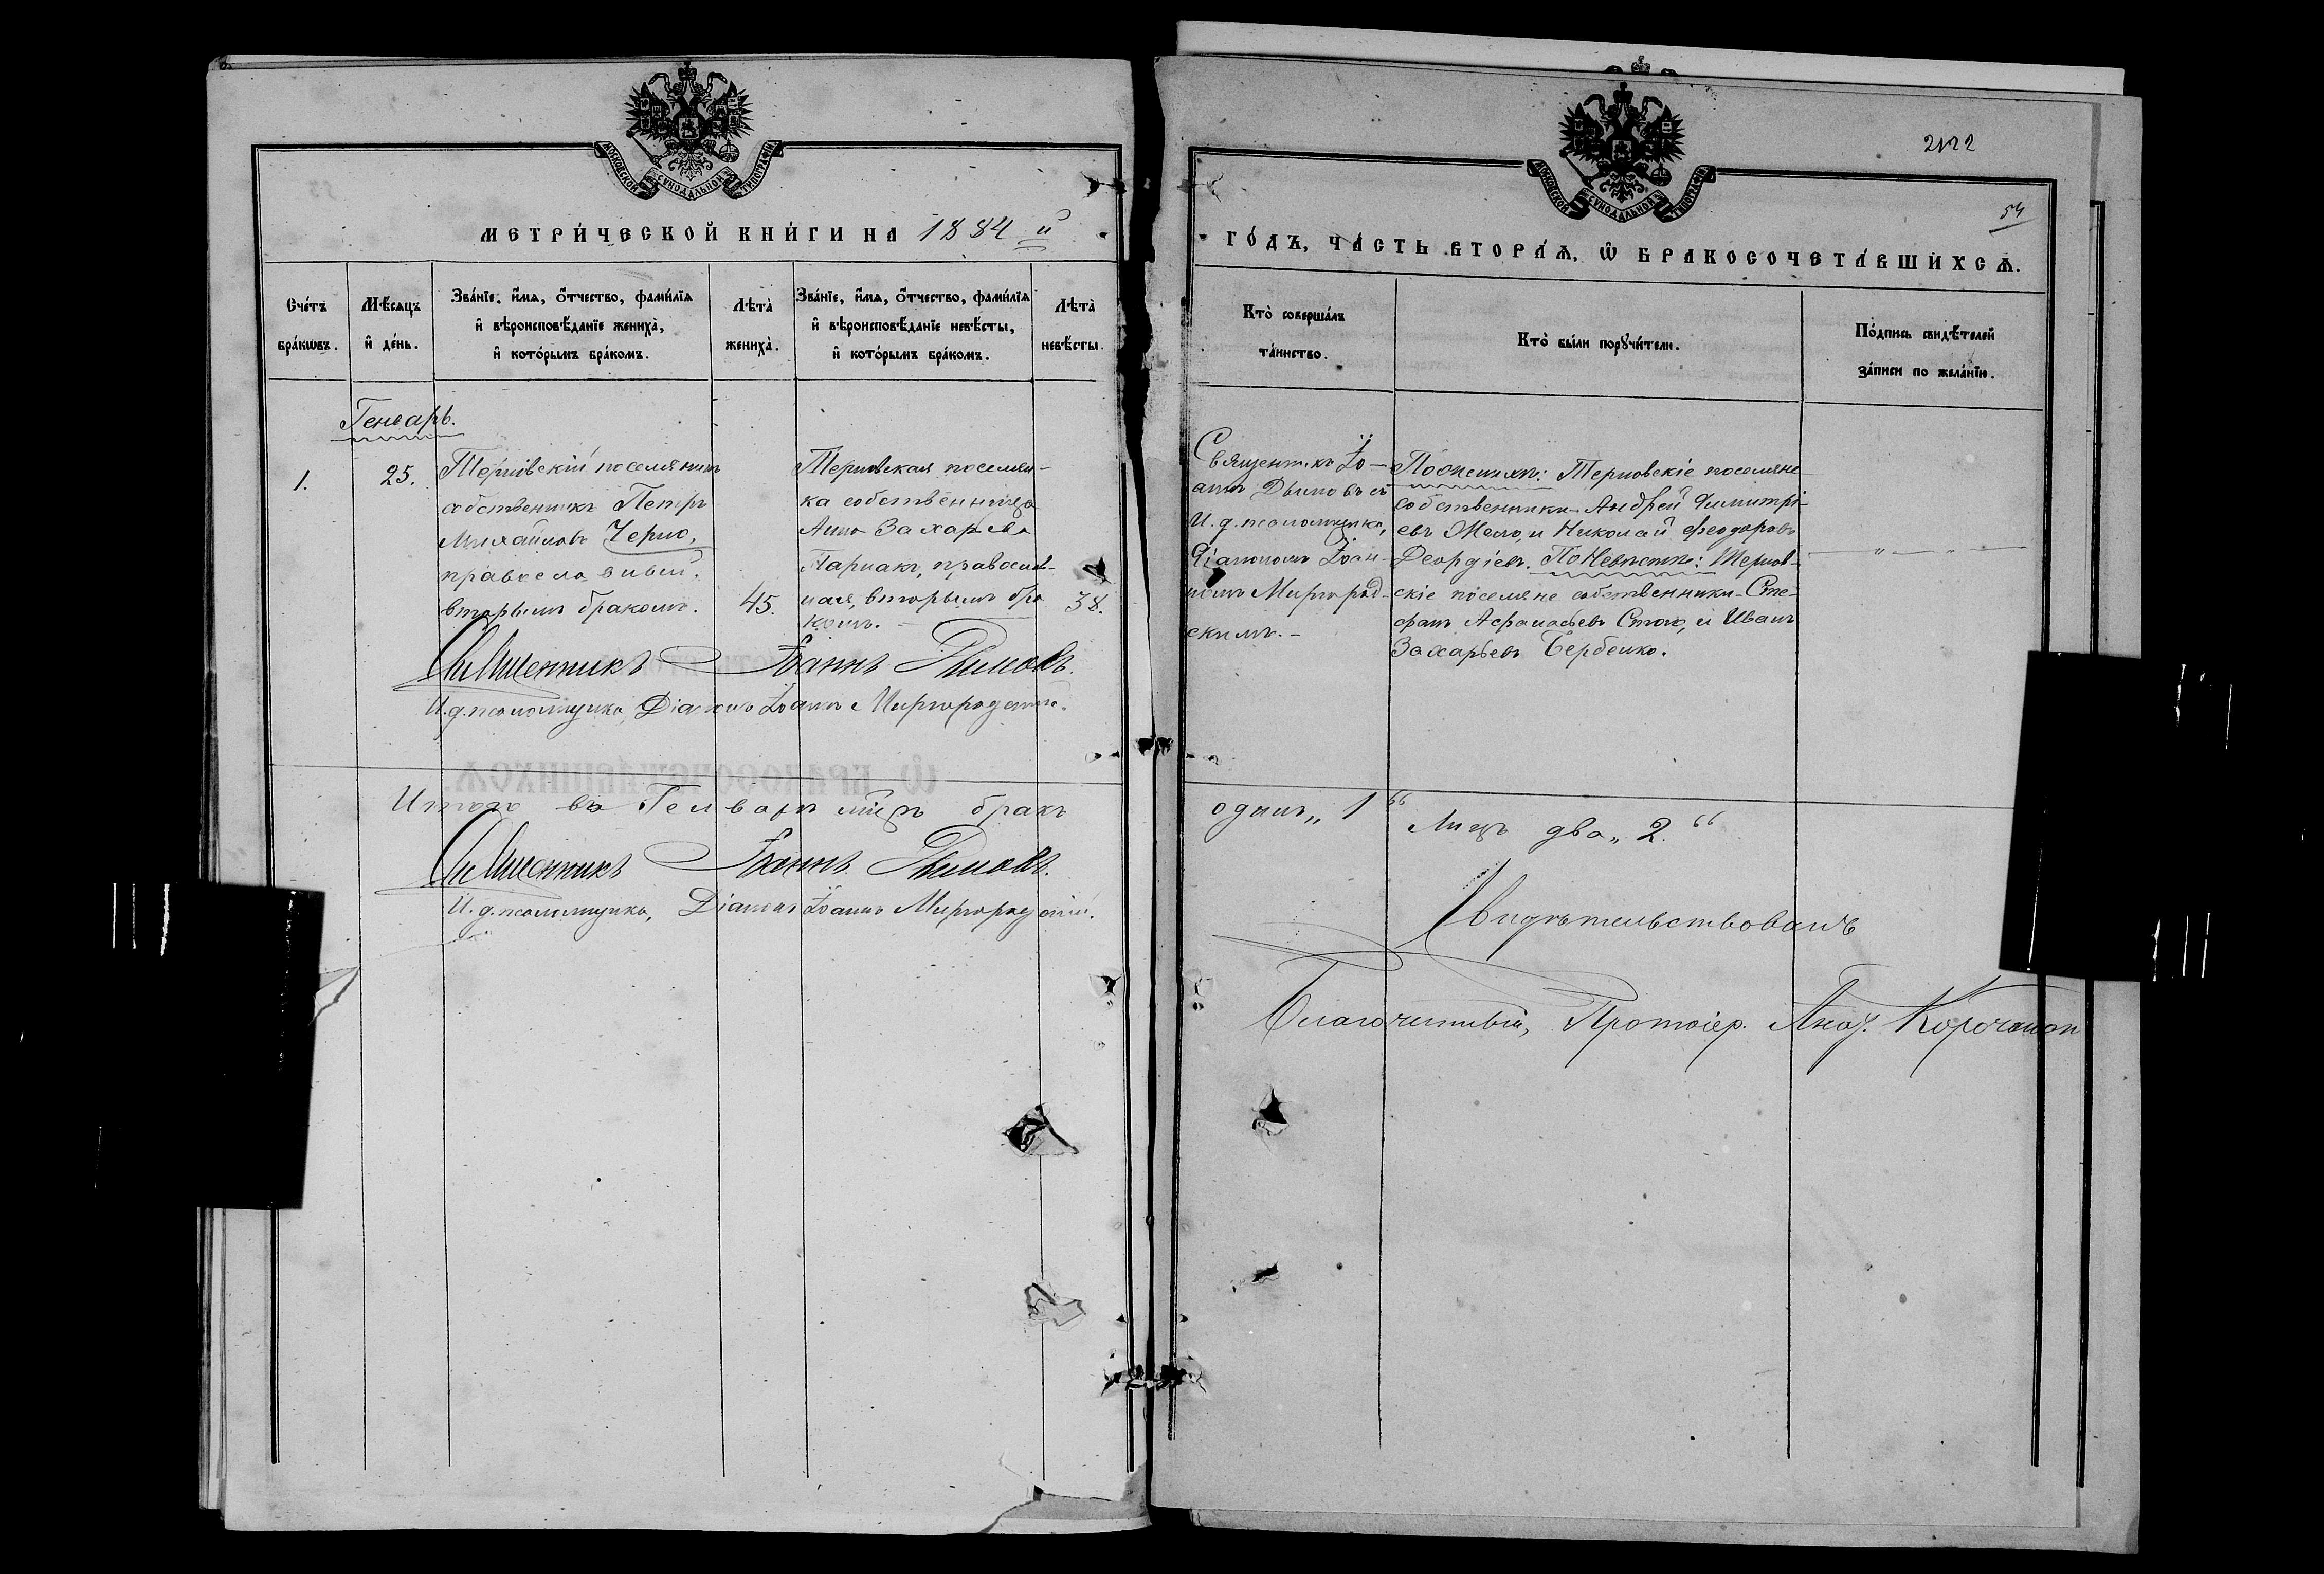 МОСКОВСКОЙ СѴНОДАЛЬНОЙ ТИПОГРАФІИ
МЕТРИ́ЧЕСКОЙ КНИ́ГИ НА 1884 й
Сче́тъ бра́кѡвъ.
Мѣ́сяцъ и҆ де́нь.
Зва́нїе, и҆́мя, ѻ҆́тчество, фами́лїя
и҆ вѣроисповѣ́данїе жениха̀,
и҆ кото́рымъ бра́комъ.
Лѣта̀
жениха̀.
Зва́нїе, и҆́мя, ѻ҆́тчество, фами́лїя
и҆ вѣроисповѣ́данїе невѣ́сты,
и҆ кото́рымъ бра́комъ.
Лѣта̀
невѣ́сты.
Генварь.
1.
25.
Терновскій поселянинъ
собственникъ Петръ
Михайловъ Черно,
православный.
вторымъ бракомъ.
45.
Терновская поселян-
ка собственница
Анна Захарьева
Парнакъ, православ-
ная, вторымъ бра
комъ.
38.
Священникъ Іоаннъ Дымовъ.
И. д. псаломщика, Діаконъ Іоаннъ Миргородскій.
Итого въ Генварѣ м̃цѣ бракъ
Священникъ Іоаннъ Дымовъ.
И. д. псаломщика, Діаконъ Іоаннъ Миргородскій.
МОСКОВСКОЙ СѴНОДАЛЬНОЙ ТИПОГРАФІИ
2122
54
ГО́ДЪ, ЧА́СТЬ ВТОРА́Ѧ, Ѡ҆ БРАКОСОЧЕТА́ВШИХСѦ.
Кто̀ соверша́лъ
та́инство.
Кто̀ бы́ли порꙋчи́тели.
По́дпись свидѣ́телей
за́писи по жела́нїю.
Священникъ Іо-
аннъ Дымовъ съ
И. д. псаломщика,
Діакономъ Іоан-
номъ Миргород-
скимъ.-
По Женихѣ: Терновскіе поселяне
собственники Андрей Димитрі-
евъ Жело, и Николай Феодоровъ
Георгіевъ. По Невѣстѣ: Тернов-
скіе поселяне собственники Сте-
фанъ Афанасьевъ Стояо, и Иванъ
Захарьевъ Бербенко.
одинъ „1“ Лицъ два „2.“
Свидѣтельствовалъ
Благочинный, Протоіер.